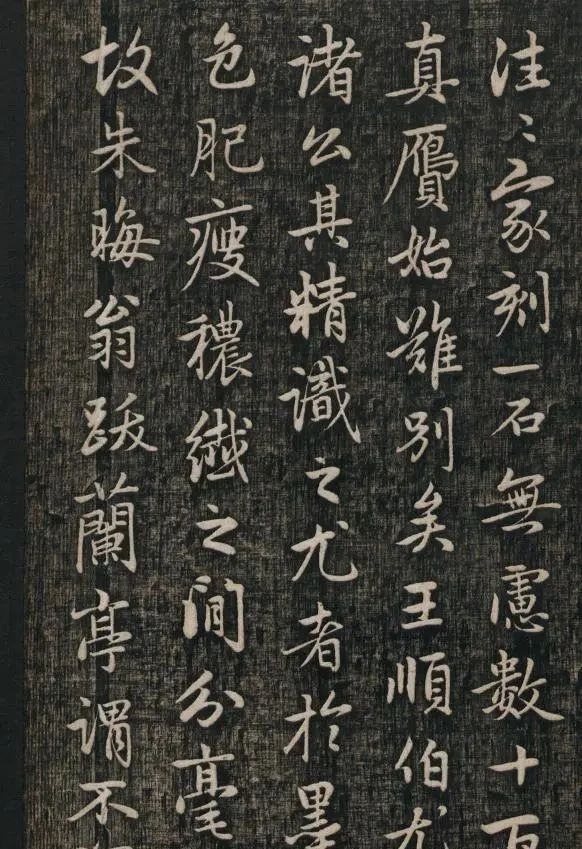 往〻家刻一石無慮數十百
真贗始難別矣王順伯尤
諸公其精識之尤者於墨
色肥瘦穠纖之間分毫
故朱晦翁跋蘭亭謂不